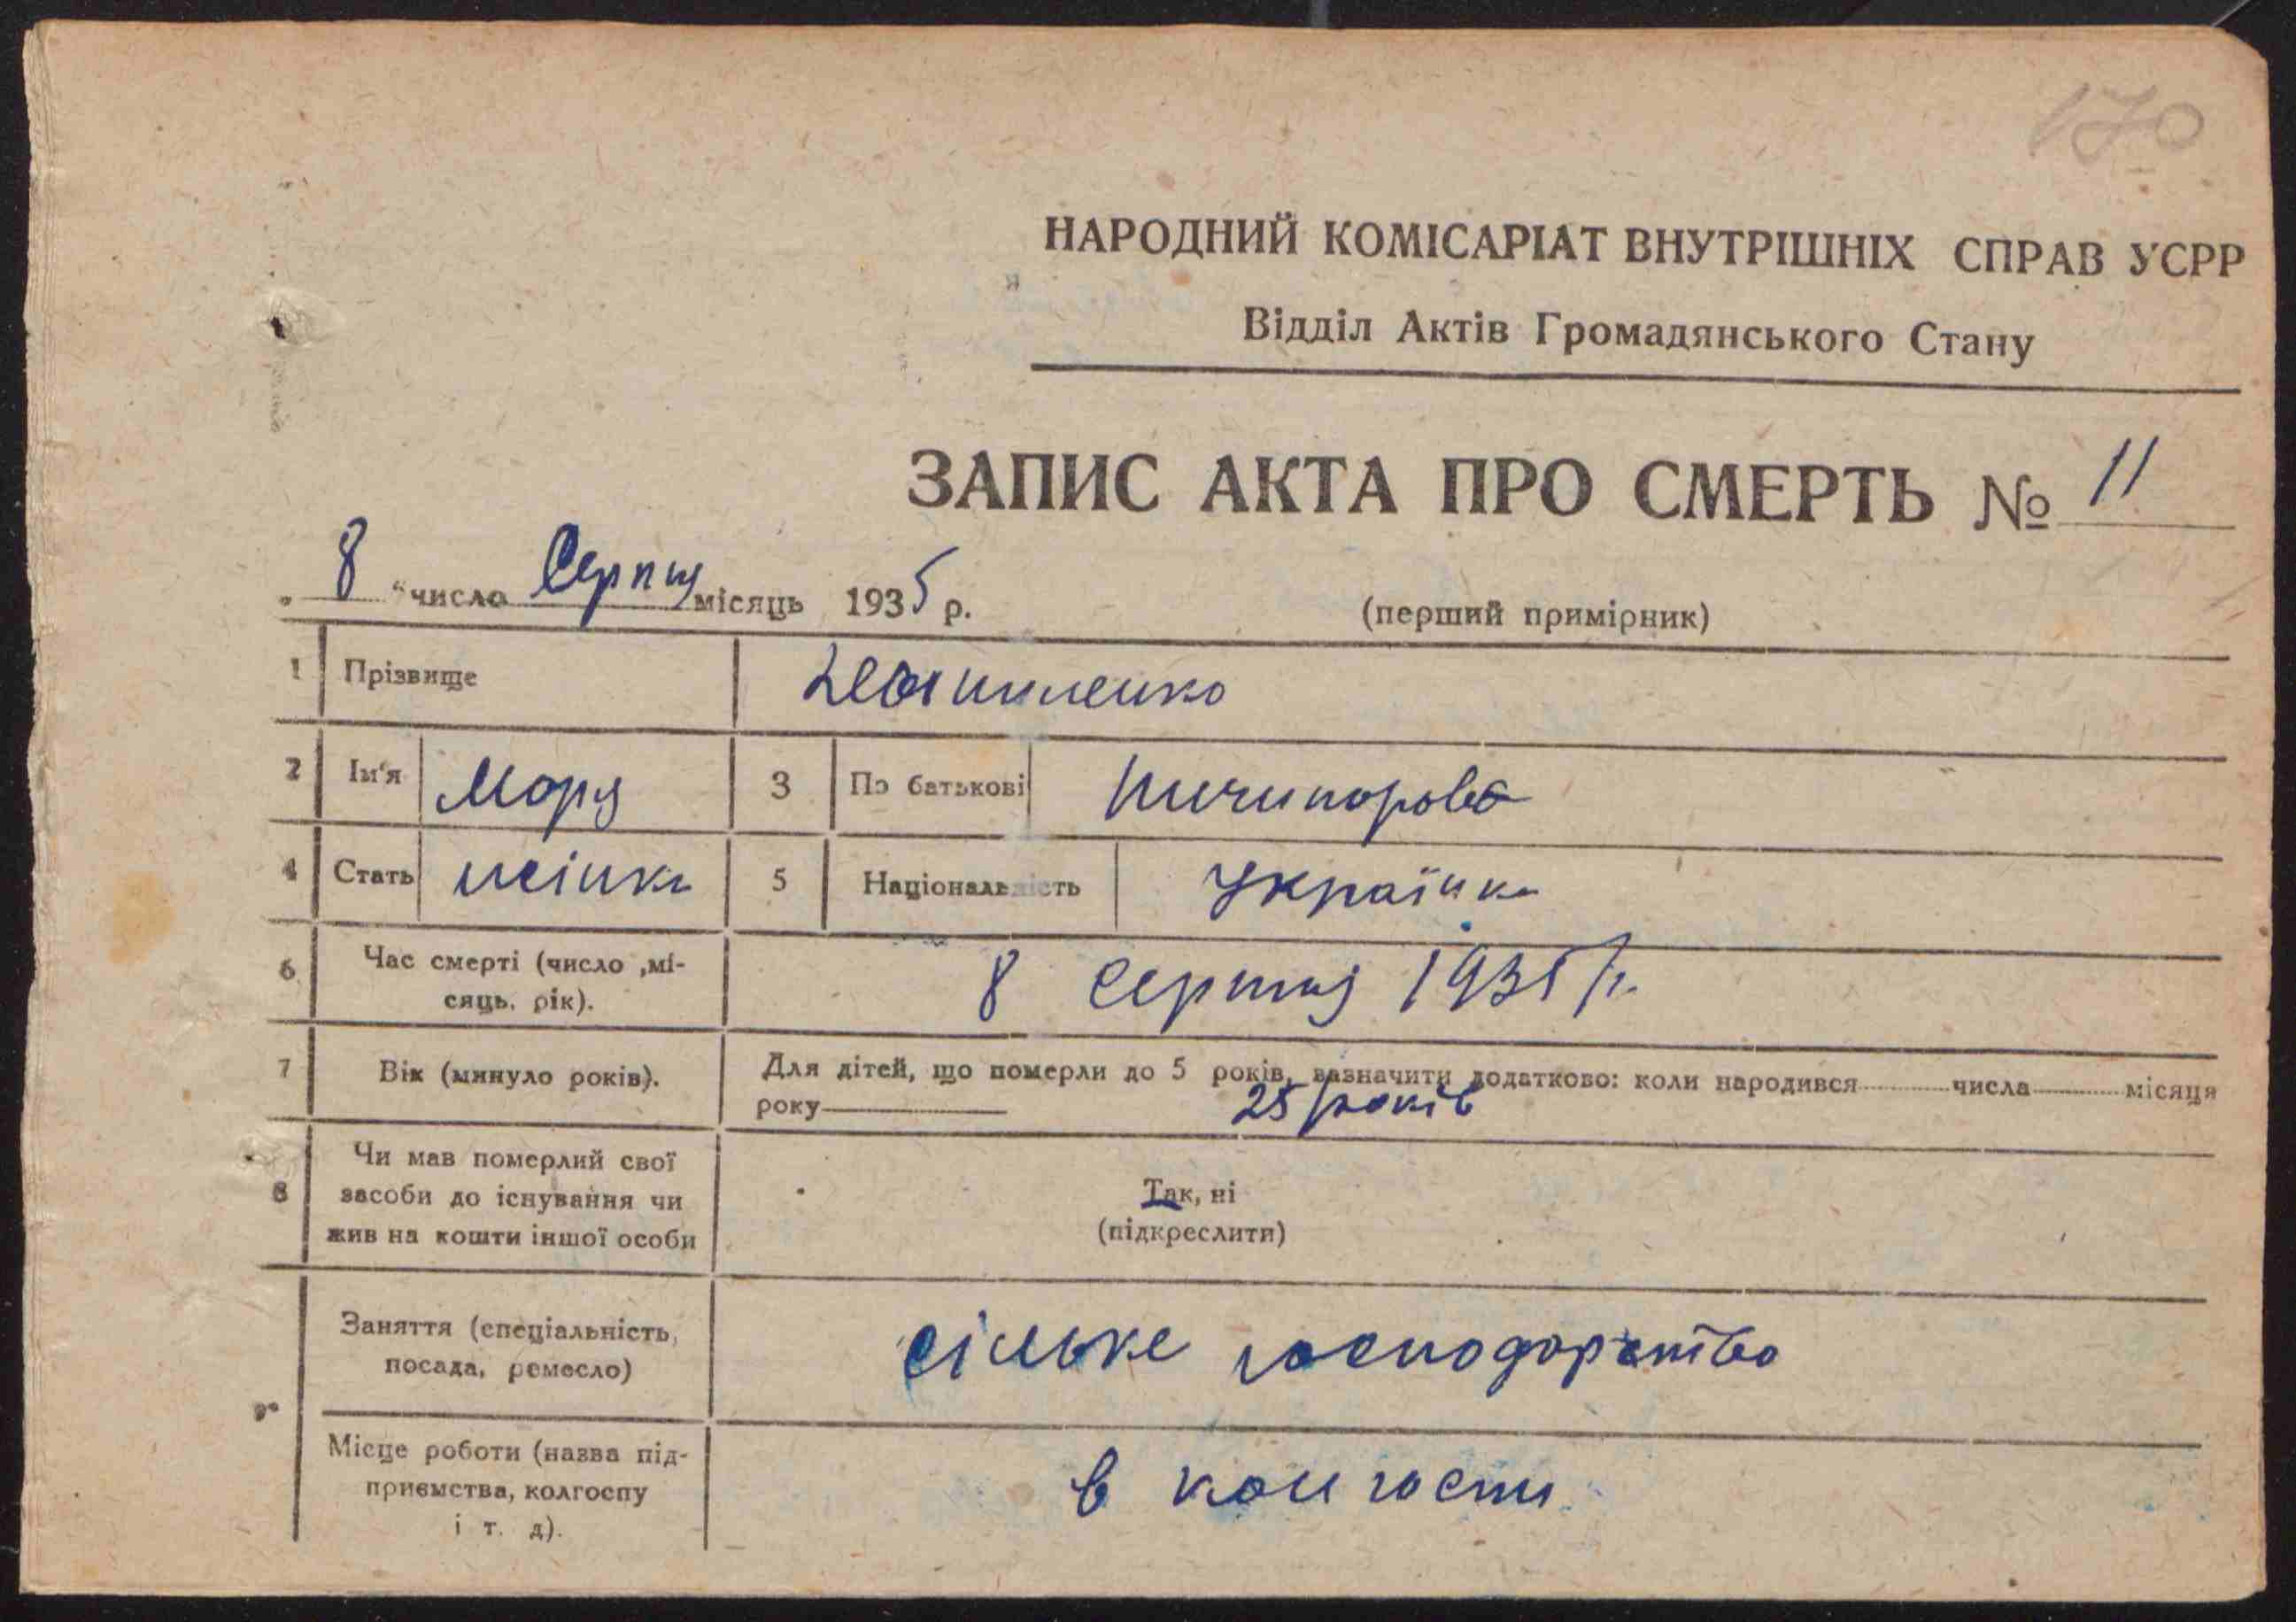 170
НАРОДНИЙ КОМІСАРІАТ ВНУТРІШНІХ СПРАВ УСРР
Відділ Актів Громадянського Стану
ЗАПИС АКТА ПРО СМЕРТЬ № 11
„ 8 “ число Серпня місяць 1935 р.
(перший примірник)
1 Прізвище
2 Ім'я Марія 3 По батькові Ничипорова
4 Стать жінка 5 Національність Українка
6 Час смерті (число ,мі-
сяць. рік). 8 серпня 1935 р.
7 Вік (минуло років). Для дітей, що померли до 5 років, вазначити додатково: коли народився числа місяця
року 25 років
8 Чи мав померлий свої
засоби до існування чи
жив на кошти іншої особи
Так, ні
(підкреслити)
9 Заняття (спеціальність,
посада, ремесло)
сільске господарство
Місце роботи (назва під-
приємства, колгоспу
і т. д).
в колгоспи